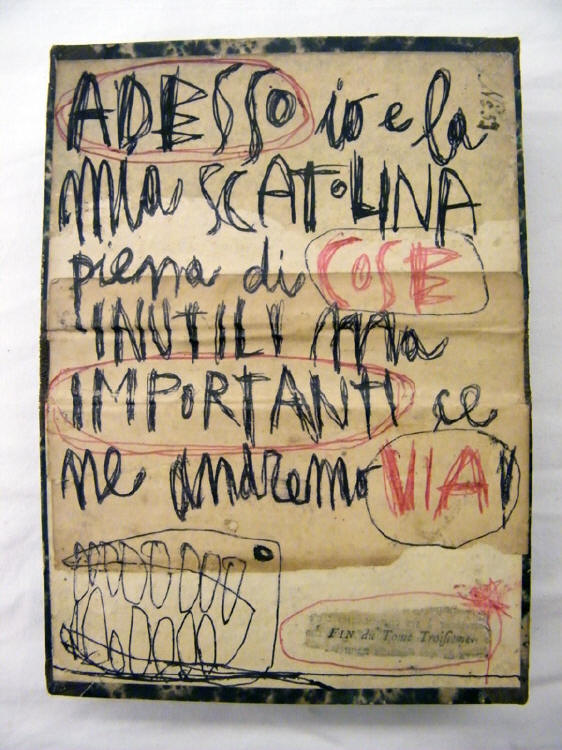 ADESSO io e la
mia SCATOLINA
piena di COSE
INUTILI ma
IMPORTANTI ce
ne andremo VIA
FIN du Tome Troisieme.